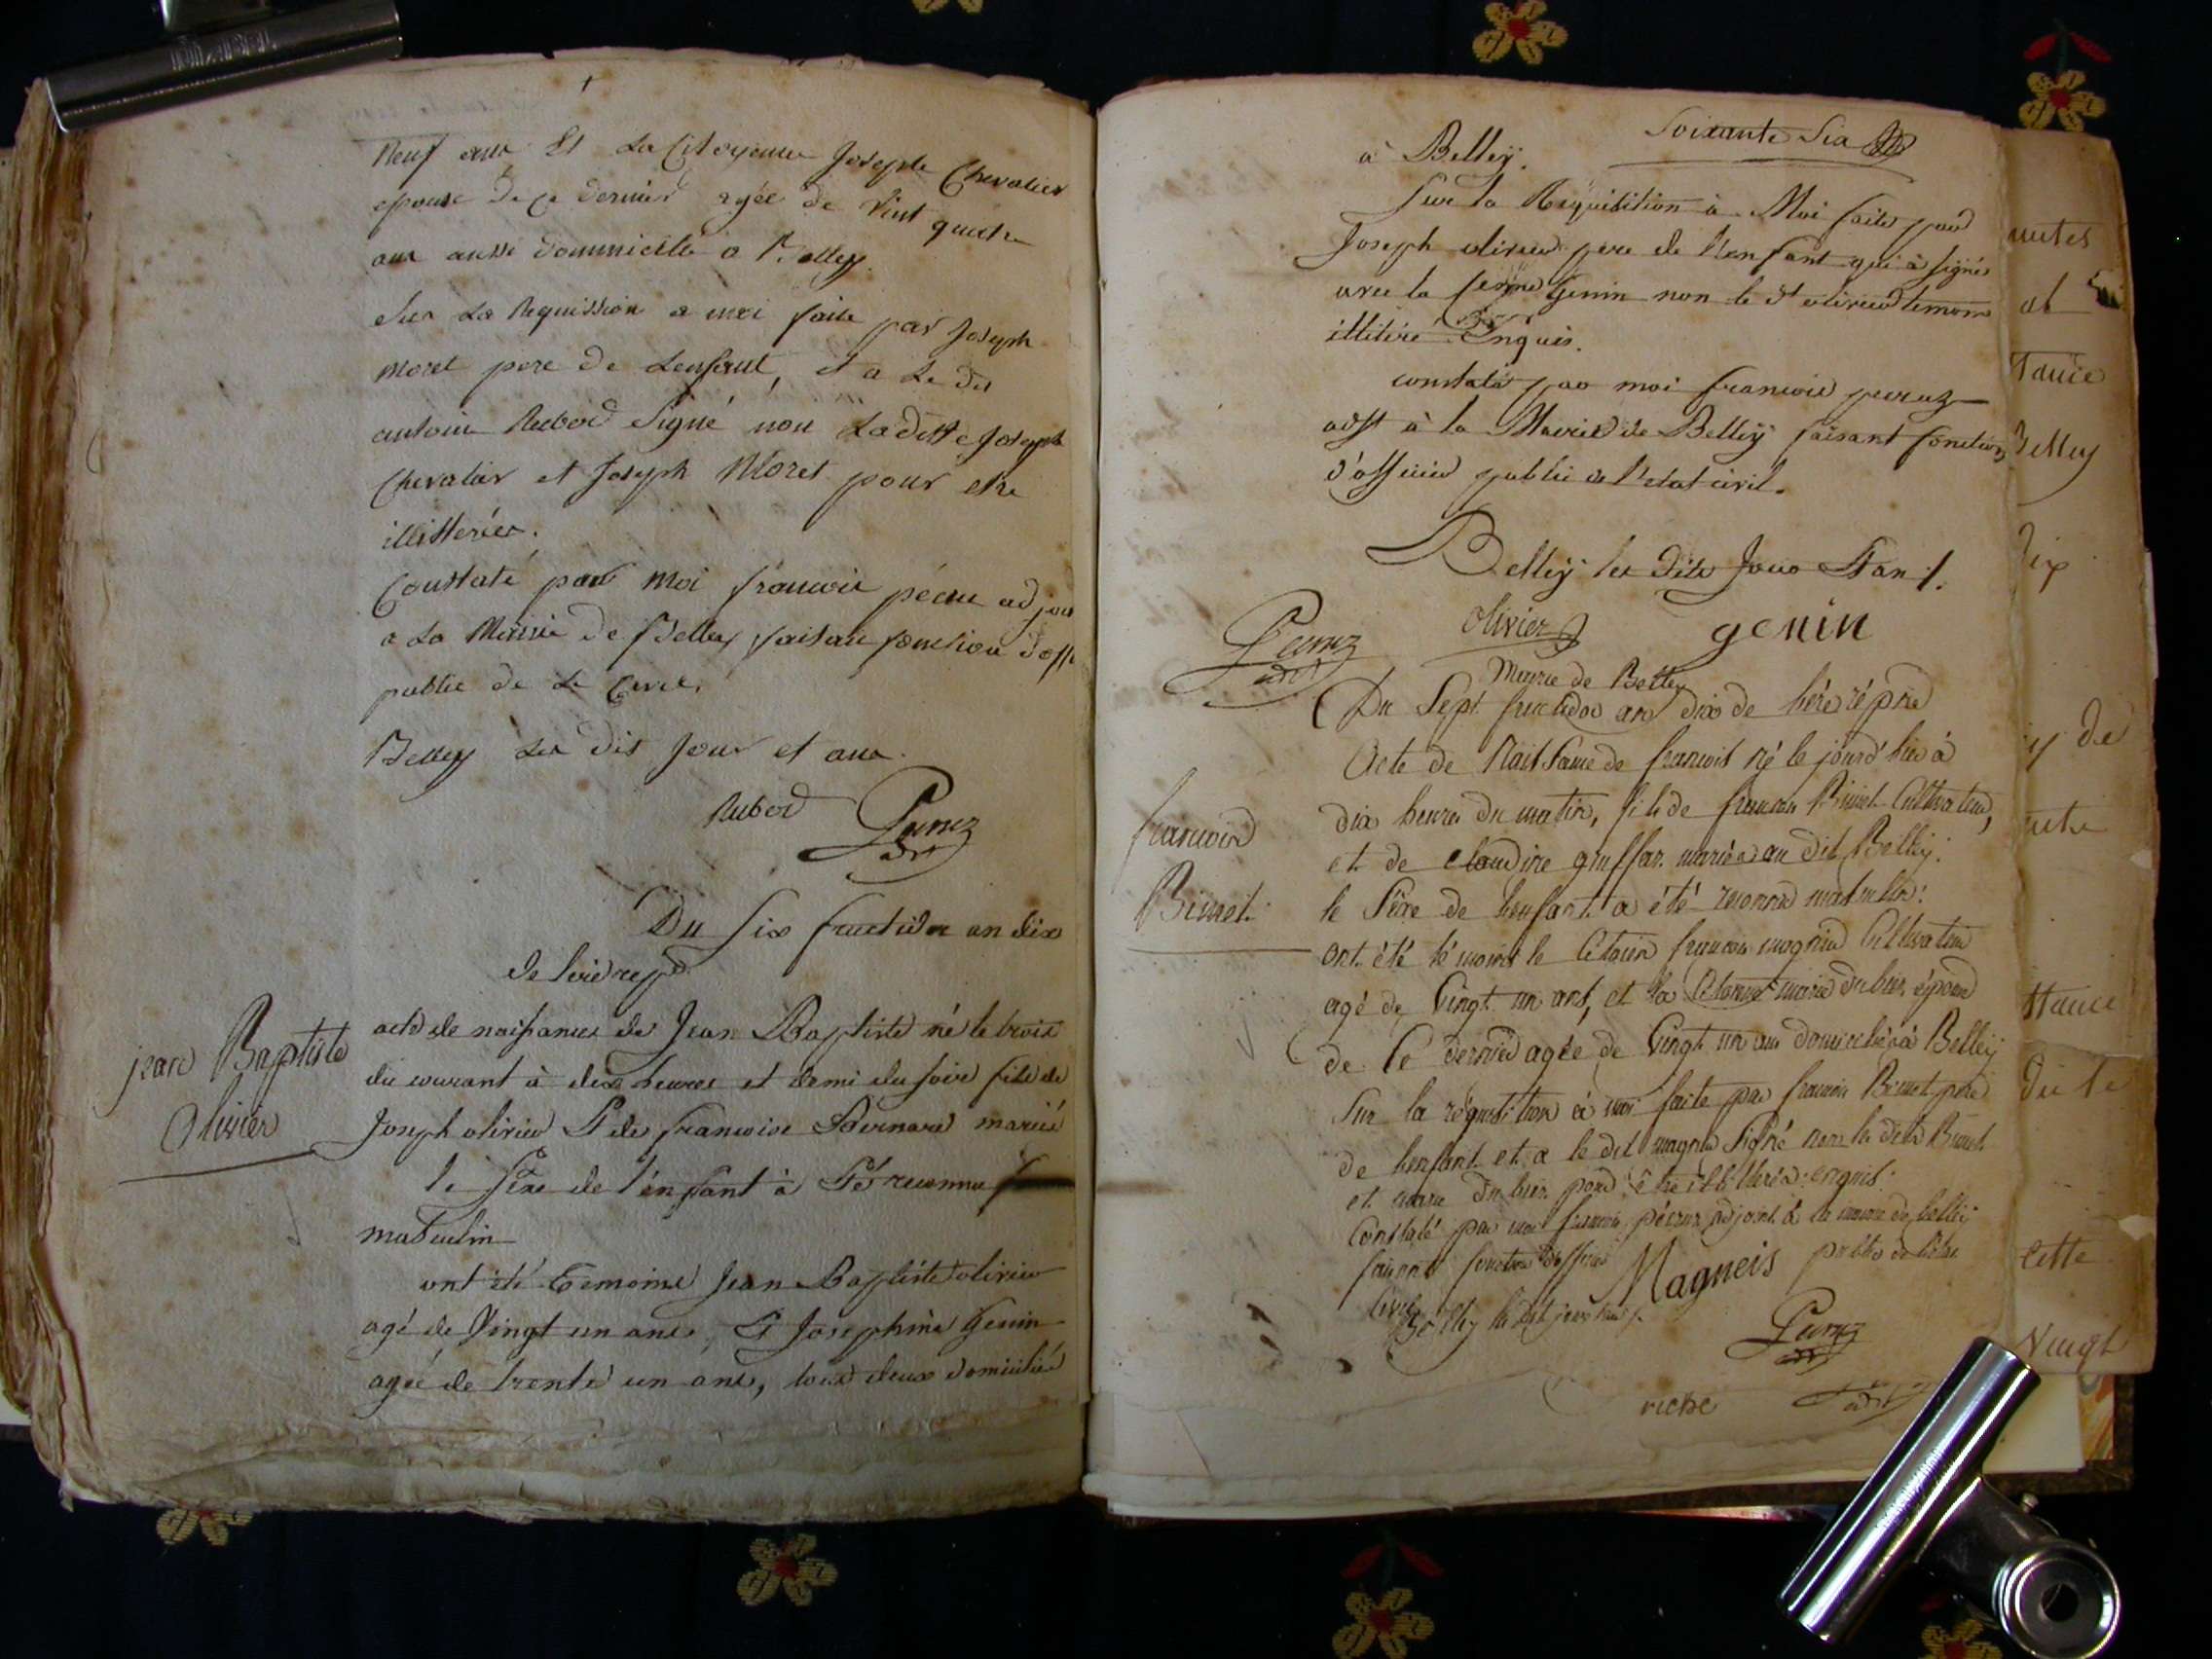 neuf ans Et La Citoyenne Josephe Chevalier
epouse de ce dernier agée de vint quatre
ans aussi dommicillé a Belley.
Sur La Requission a moi faite par Joseph
moret pere de Lenfant, et a Le dit
antoine Rubod Signé non Ladite Joseph
Chevalier et Joseph Moret pour etre
illitterées.
Constaté par Moi francois
a La Mairie de Belley faisant fonction d'off
public de
Belley Les dit Jour et ans.
Rubod
Du Six fructidor an dix
de l'ere rep
jean Baptiste
Olivier
acte de naissance de Jean Baptiste né le trois
du courant à deux heures et demi du soir fils de
Joseph olivier & de francoise Bernard mariés
le Sexe de l'enfant à été reconnu
masculin
ont été temoins Jean Baptiste olivier
agé de Vingt un ans, & Josephine Genin
agée de trente un ans, tous deux domiciliés
Soixante Six
à Belley.
Sur la Réquisition à Moi faite par
Joseph olivier pere de l'enfant qui à signé
avec la Genin non le dt olivier temoin
illitéré Enquis.
constaté par moi francois
adjt à la Mairie de Belley faisant fonctions
d'officier public de l'etat civil.
Belley les dits Jour & an /.
Olivier genin
Mairie de Belley
Du Sept fructidor an dix de l'ère répne
francois
Acte de Naissance de francois né le jour d'hier à
dix heures du matin, fils de francois Cultivateur,
et de claudine mariés au dit Belley.
le Sexe de l'enfant a été reconnu masculin.
ont été témoins le Citoien francois Cultivateur
agé de Vingt un ans, et la Citoienne marie épouse
de Ce dernier agée de Vingt un ans domiciliés à Belley
Sur la réquisition à moi faite par francois père
de l'enfant et a le dit Signé non le dit
et marie pour être illitterés enquis.
Constaté par moi francois adjoint à la mairie de belley
faisant fonction d'officier public de l'état
Civil
Belley les dit jour & an /.
Magneis
riche
nutes
Belley
dix
y de
du le
Cette
Vingt